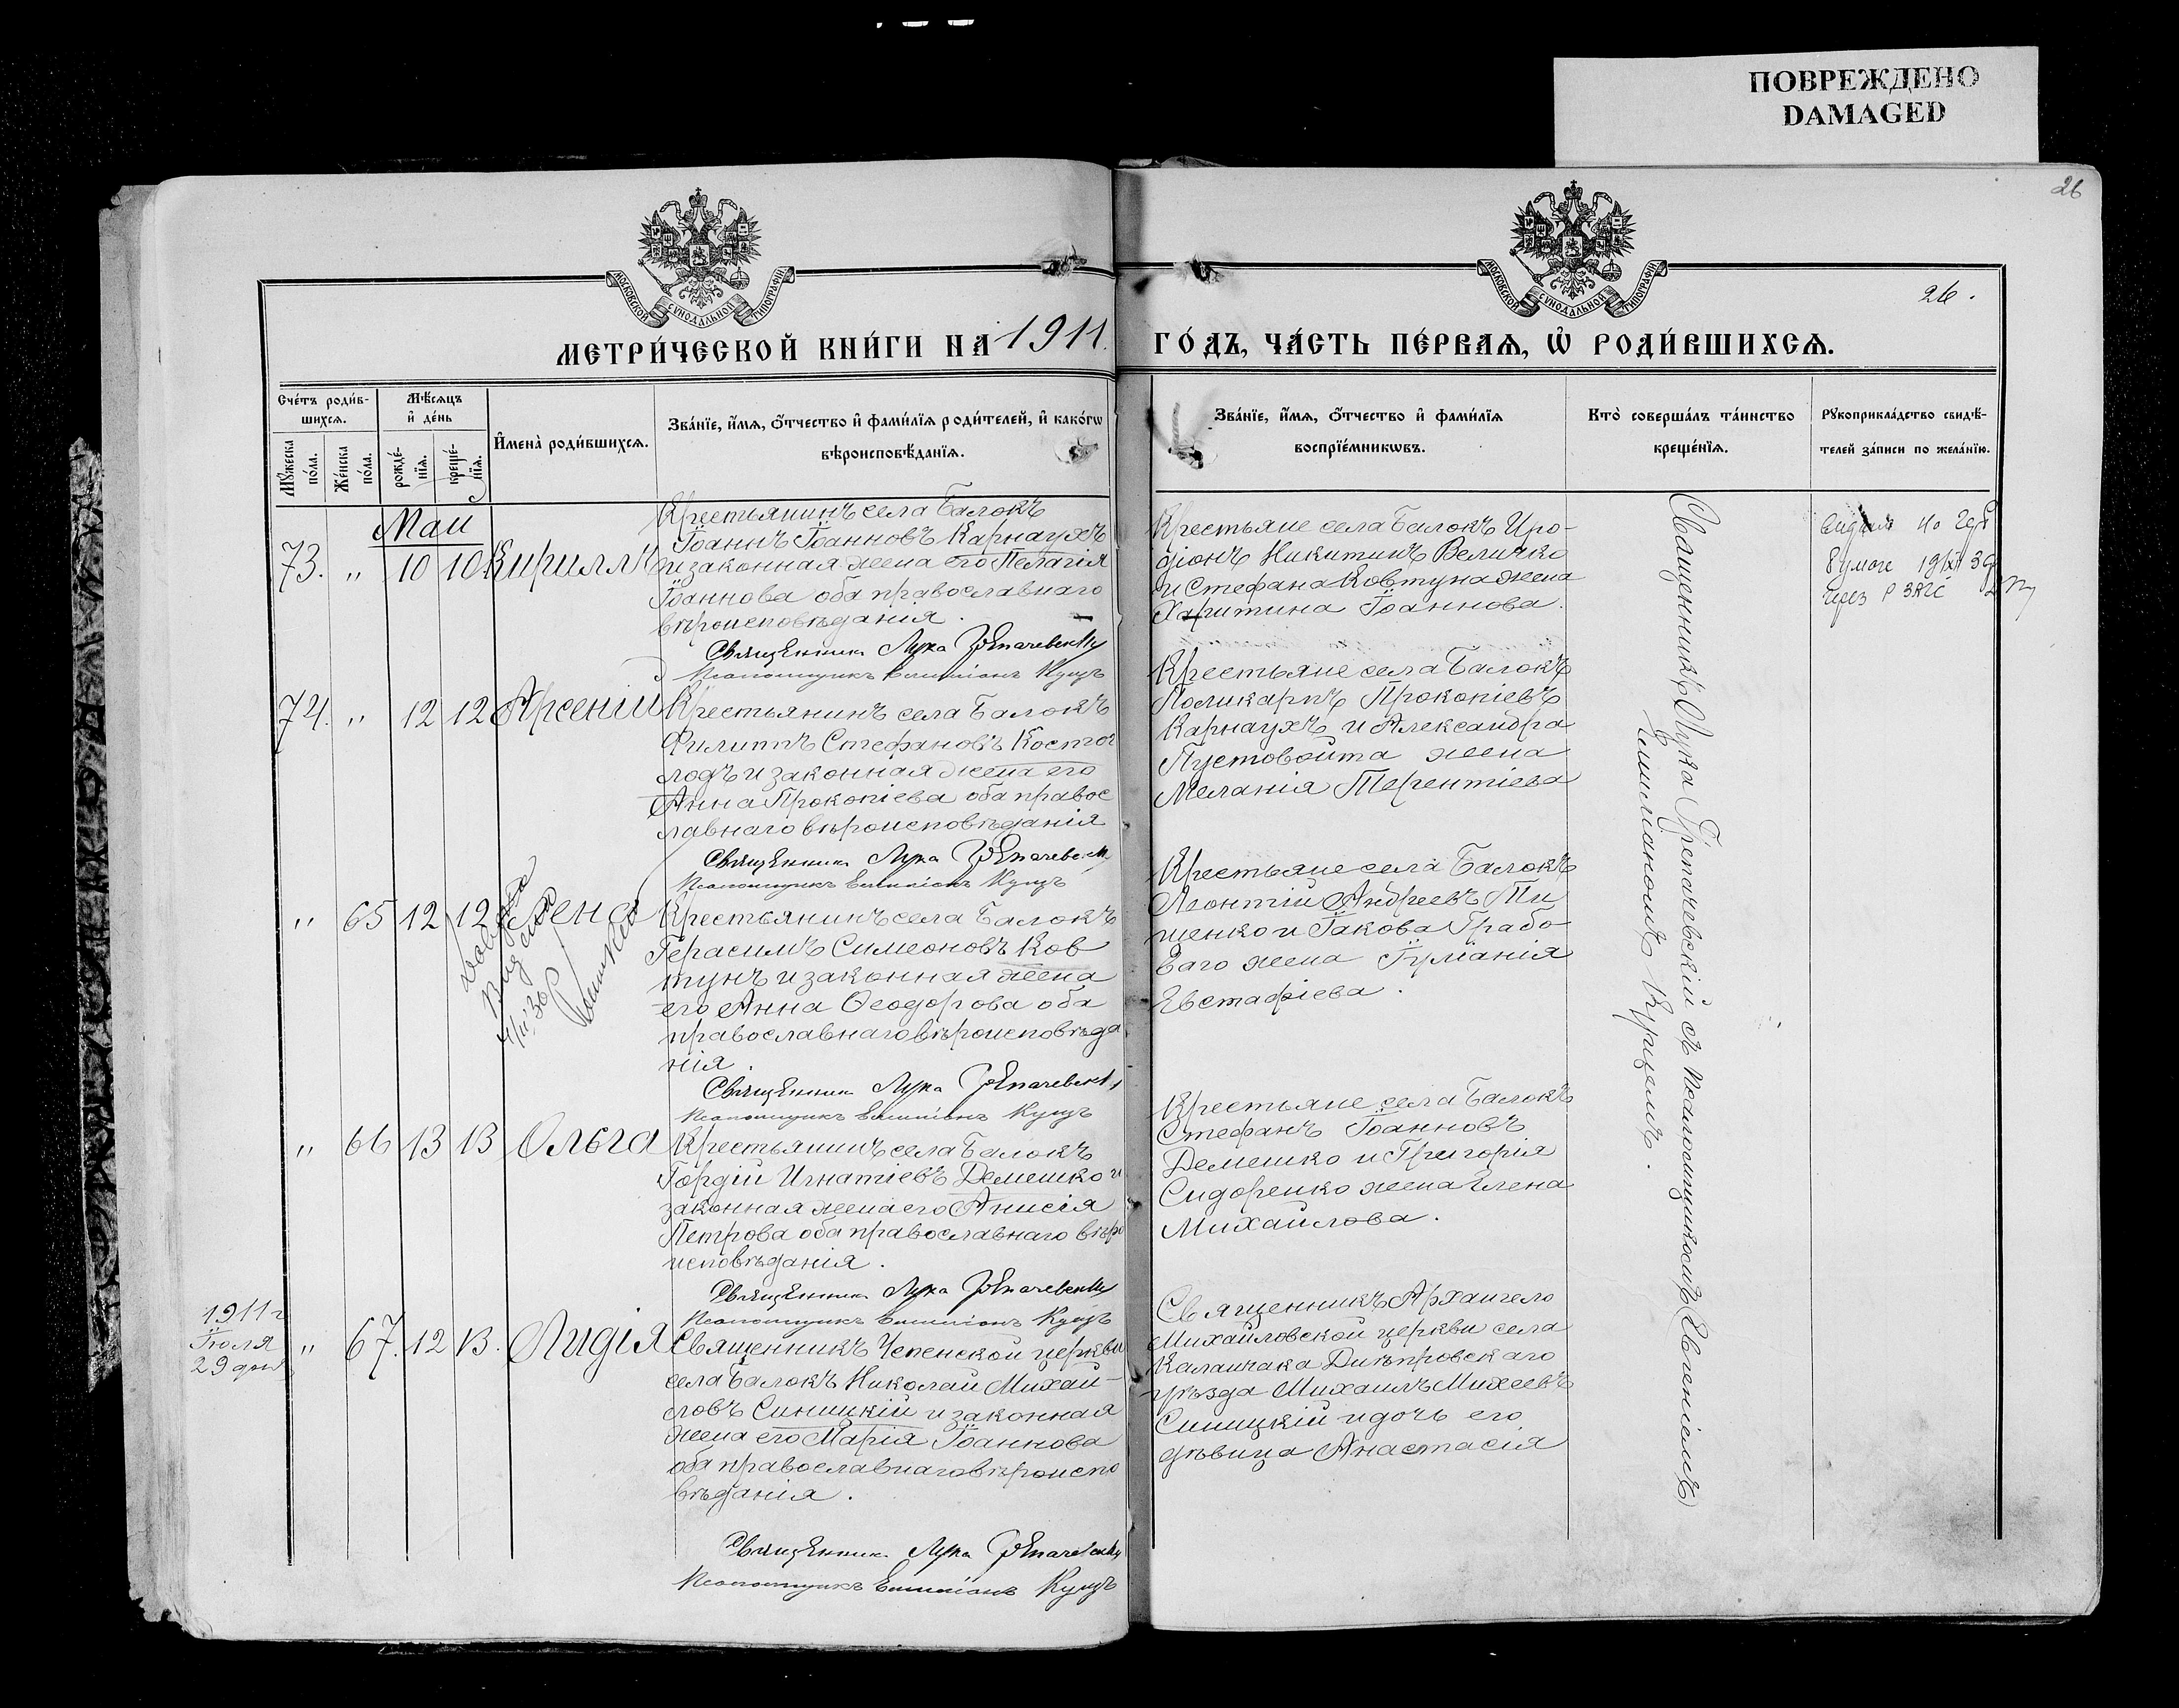 ПОВРЕЖДЕНО
DAMAGED
26
26.
МОСКОВСКОЙ СѴНОДАЛЬНОЙ ТИПОГРАФІИ
МОСКОВСКОЙ СѴНОДАЛЬНОЙ ТИПОГРАФІИ
МЕТРИ́ЧЕСКОЙ КНИ́ГИ НА 1911. ГО́ДЪ, ЧА́СТЬ ПЕ́РВАѦ, Ѡ҆ РОДИ́ВШИХСѦ.
Сче́тъ роди́в-
шихсѧ.
Мꙋ́жеска по́ла.
Же́нска по́ла.
Мѣ́сѧцъ
и҆ де́нь
рожде́-
нїѧ.
креще́-
нїѧ.
И҆мена̀ роди́вшихсѧ.
Зва́нїе, и҆́мѧ, о҆́тчество и҆ фами́лїѧ роди́телей, и҆ како́гѡ
вѣроисповѣ́данїѧ.
Зва́нїе, и҆́мѧ, о҆́тчество и҆ фами́лїѧ
воспрїе́мникѡвъ.
Кто̀ соверша́лъ та́инство
креще́нїѧ.
Рꙋкоприкла́дство свидѣ́-
телей за́писи по жела́нїю.
Маи
73. " 10 10 Кириллъ
Крестьянинъ села Балокъ
Іоаннъ Іоанновъ Карнаухъ
и законная жена его Пелагія
Іоаннова оба православнаго
вѣроисповѣданія.
Священникъ Лука Грепачевскій
Псаломщикъ Емиліанъ Куцъ
Крестьяне села Балокъ Иро-
діонъ Никитинъ Величко
и Стефана Ковтуна жена
Харитина Іоаннова.
через РЗАГС
74. " 12 12 Арсеній
Крестьянинъ села Балокъ
Филиппъ Стефановъ Костог
лодъ и законная жена его
Анна Прокопіева оба правос
лавнаго вѣроисповѣданія
Священникъ Лука Грепачевскій
Псаломщикъ Емиліанъ Куцъ
Крестьяне села Балокъ
Поликарпъ Прокопіевъ
Карнаухъ и Александра
Пустовойта жена
Меланія Терентіева
" 65 12 12 Елена
Крестьянинъ села Балокъ
Герасимъ Симеоновъ Ков
тунъ и законная жена
его Анна Ѳеодорова оба
православнаго вѣроисповѣда
нія.
Священникъ Лука Грепачевскій
Псаломщикъ Емиліанъ Куцъ
Крестьяне села Балокъ
Леонтій Андреевъ Ти
щенко и Іакова Грабо-
ваго жена Іуліанія
Евстафіева.
" 66 13 13 Ольга
Крестьянинъ села Балокъ
Гордій Игнатіевъ Демешко и
законная жена его Анисія
Петрова оба православнаго вѣро
исповѣданія.
Священникъ Лука Грепачевскій
Псаломщикъ Емиліанъ Куцъ
Крестьяне села Балокъ
Стефанъ Іоанновъ
Демешко и Григорія
Сидоренко жена Елена
Михайлова.
1911 г
Іюля
29 дня
" 67. 12 13. Лидія
Священникъ Успенской церкви
села Балокъ Николай Михай-
ловъ Синицкій и законная
жена его Марія Іоаннова
оба православнаго вѣроиспо
вѣданія.
Священникъ Лука Грепачевскій
Псаломщикъ Емиліанъ Куцъ
Священникъ Архангело
Михайловской церкви села
Каланчака Днѣпровскаго
уѣзда Михаилъ Михеевъ
Синицкій и дочь его
дѣвица Анастасія
Священникъ Лука Грепачевскій съ псаломщикомъ (Евгеніемъ)
Емиліаномъ Куцемъ.